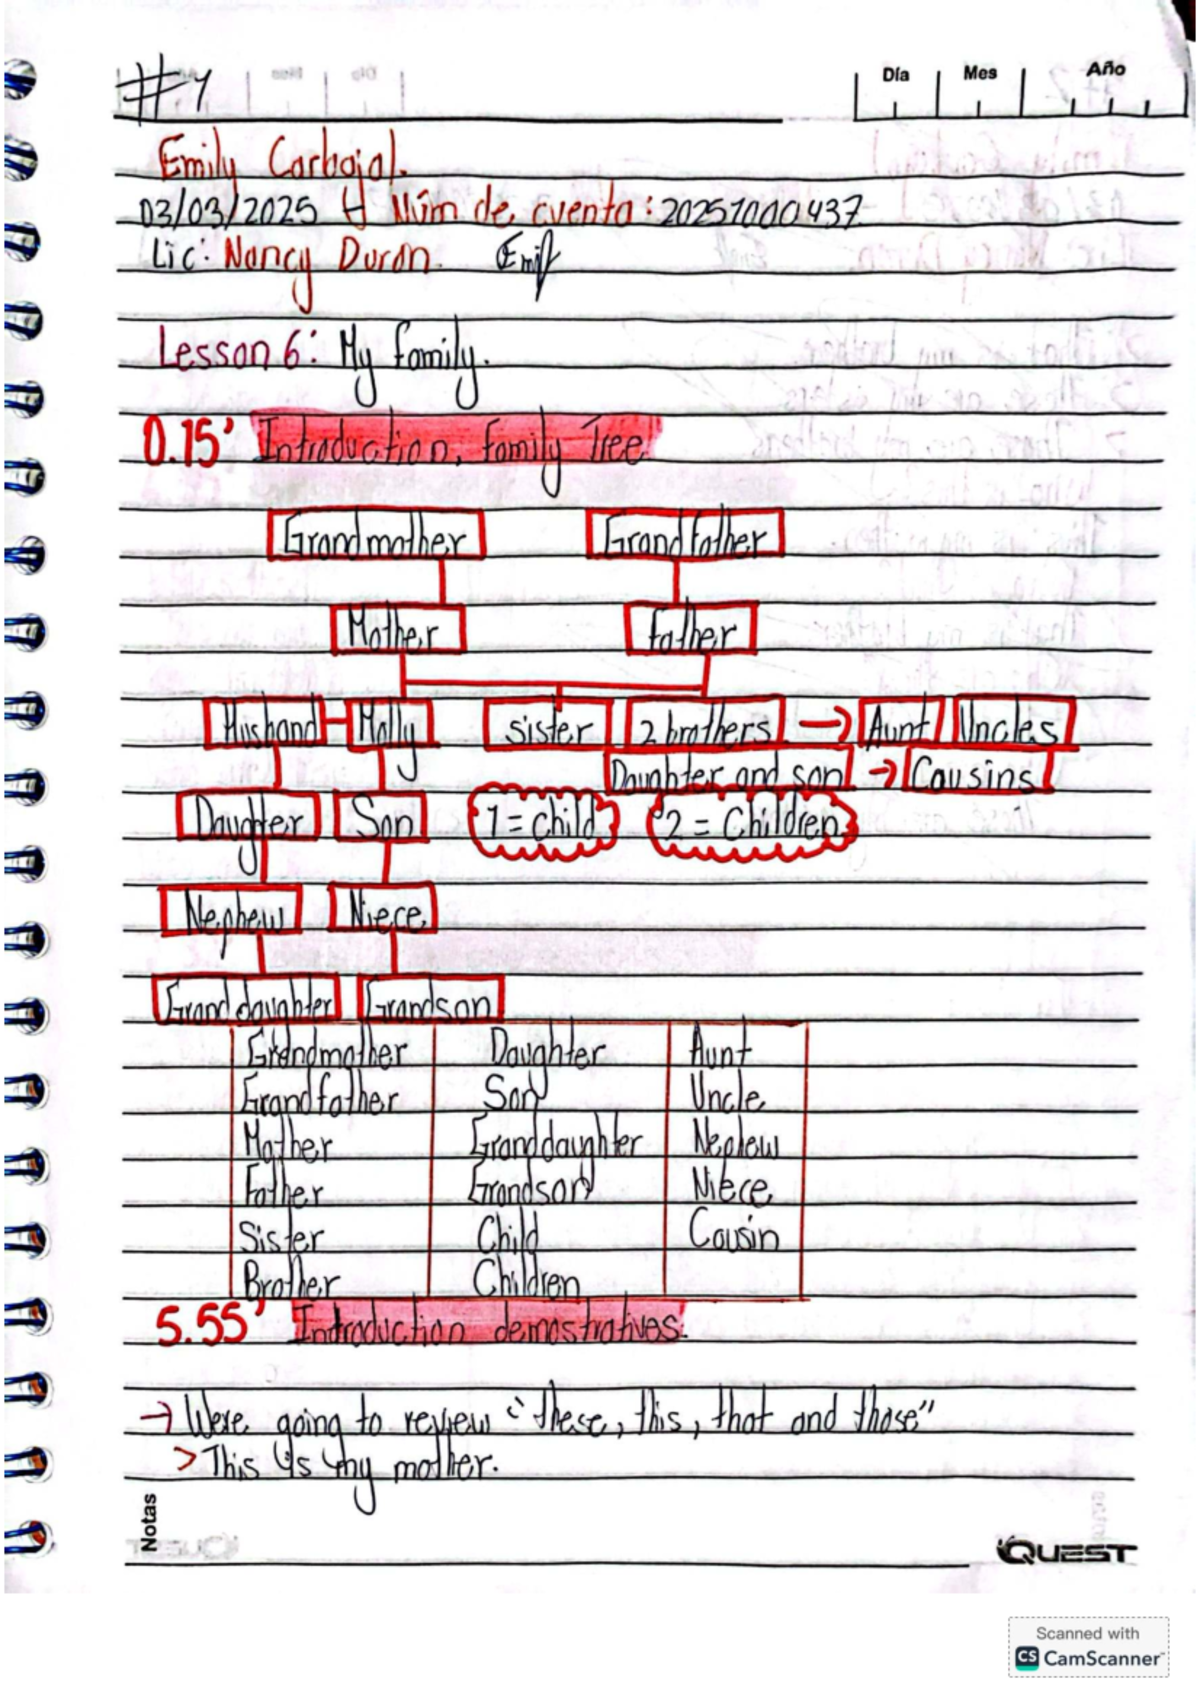 #1
Día Mes Año
Emily Carbajal.
03/03/2025 Núm de cuenta: 20251000437
Lic: Nancy Duron. Emily
Lesson 6: My family.
0.15' Introduction, family Tree
Grandmother Grandfather
Mother Father
Husband Molly sister 2 brothers → Aunt Uncles
Daughter and son → Cousins
Daughter Son 1 = child 2 = Children
Nephew Niece
Granddaughter Grandson
Grandmother Daughter Aunt
Grandfather Son Uncle
Mother Granddaughter Nephew
Father Grandson Niece
Sister Child Cousin
Brother Children
5.55' Introduction demostratives.
→ Were going to review "these, this, that and those"
> This is my mother.
Notas
QUEST
Scanned with
CS CamScanner